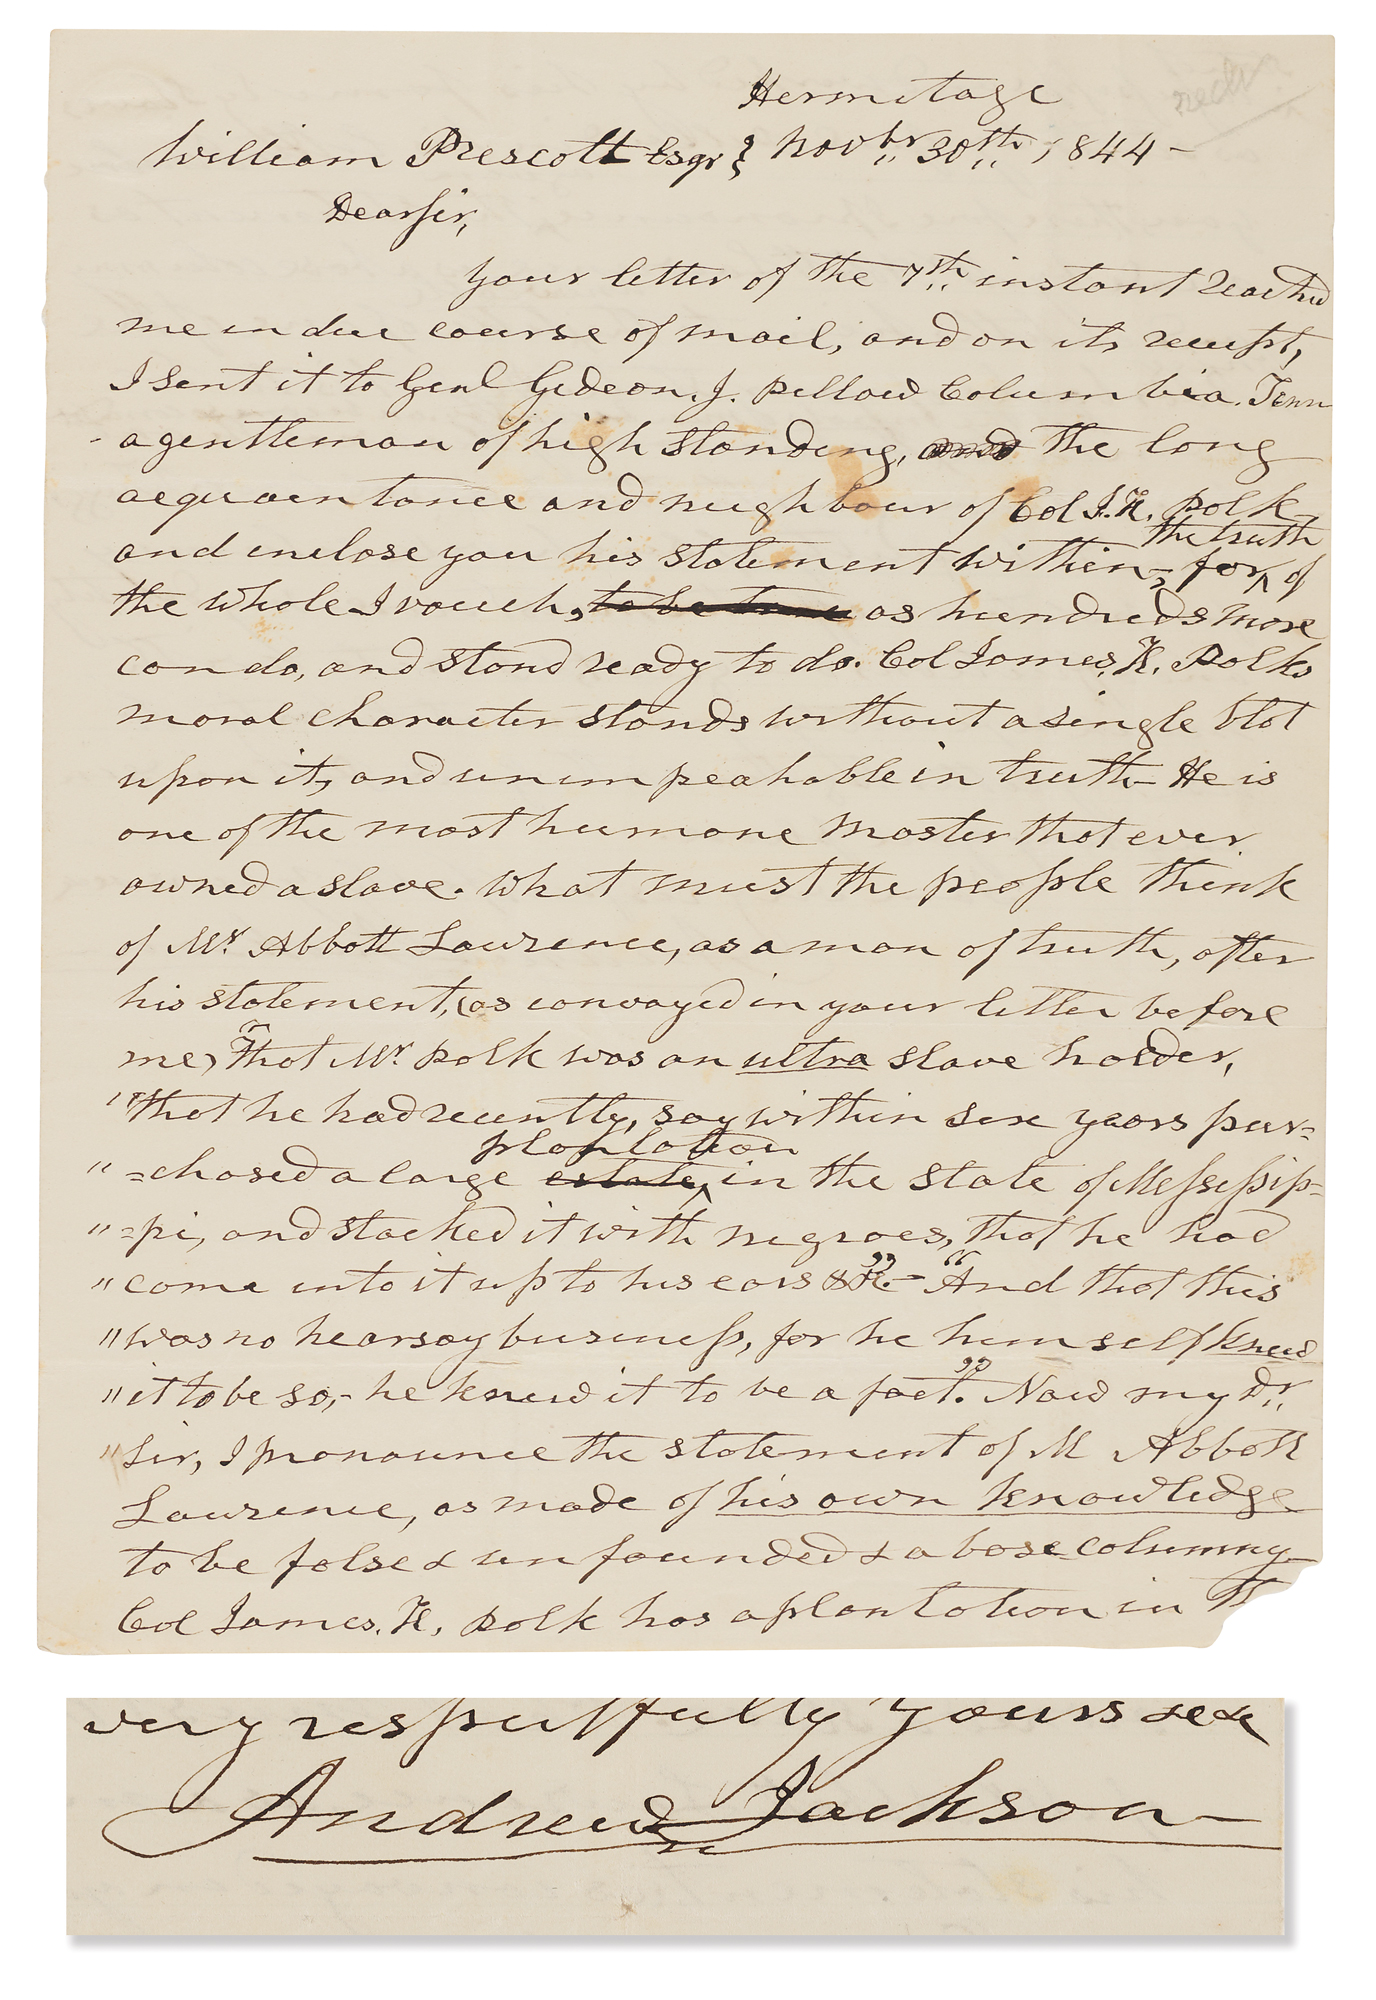 Hermitage
William Prescott Esqr } Novbr 30th 1844 -
Dear Sir,
your letter of the 7th instant reached
me in due course of mail, and on its receipt,
I sent it to Genl Gideon. J. Pillow Columbia. Tenn
- a gentleman of high standing, and the long
acquaintance and neighbour of Col J. K. Polk
and inclose you his statement within, for the truth of
the whole I vouch, to be true as hundreds more
can do, and stand ready to do. Col James. K. Polks
moral character stands without a single blot
upon it, and unimpeachable in truth - He is
one of the most humane master that ever
owned a slave. What must the people think
of Mr. Abbott Lawrence, as a man of truth, after
his statement, (as convayed in your letter before
me) "That Mr. Polk was an ultra slave holder,
"that he had recently, say within six years pur=
" =chased a large estate, plantation in the state of Missisip=
" =pi, and stacked it with negroes, that he had
" come into it up to his ears &c." - "And that this
" was no hearsay business, for he himself knew
" it to be so, - he knew it to be a fact." Now my Dr.
" Sir, I pronounce the statement of M Abbott
Lawrence, as made of his own knowledge
to be false & unfounded & a base columny
Col James. K. Polk has a plantation in
very respectfully yours &c&c
Andrew Jackson